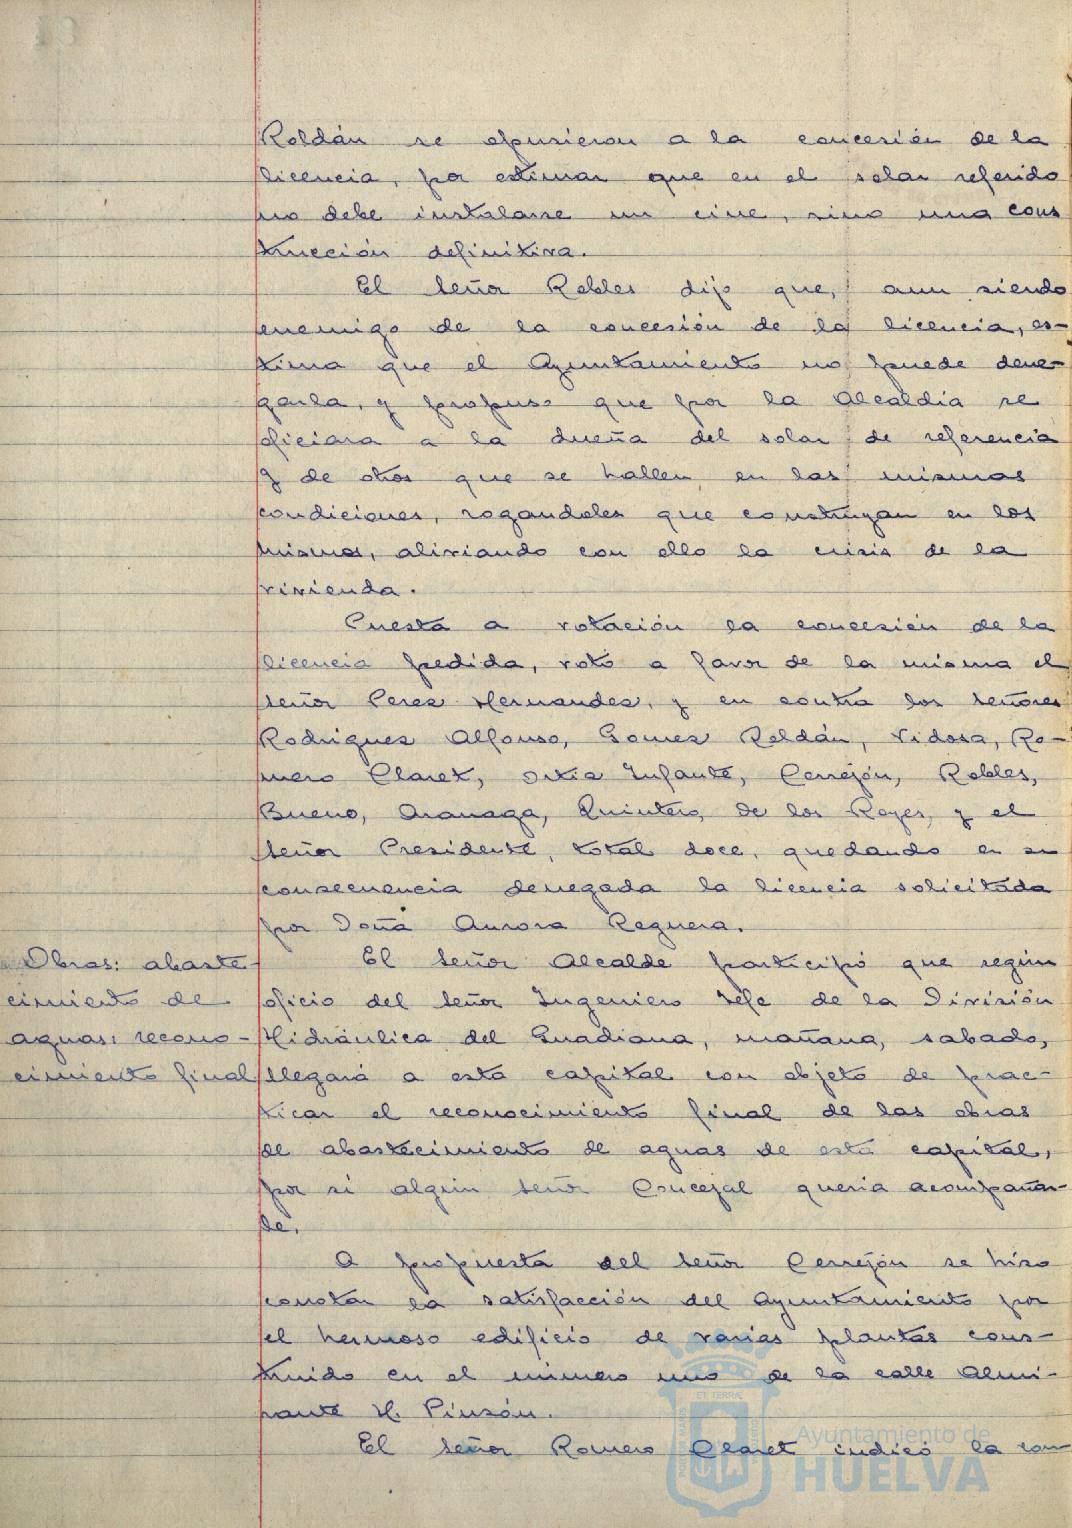 Roldán se opusieron a la concesión de la
licencia, por estimar que en el solar referido
no debe instalarse un cine, sino una cons
trucción definitiva.
El Señor Robles dijo que, aun siendo
enemigo de la concesión de la licencia, es-
tima que el Ayuntamiento no puede dene-
garla, y propuso que por la Alcaldía se
oficiara a la dueña del solar de referencia
y de otros que se hallen en las mismas
condiciones, rogandoles que construyan en los
mismos, aliviando con ello la crisis de la
vivienda.
Puesta a votación la concesión de la
licencia pedida, votó a favor de la misma el
Señor Perez Hernandez, y en contra los Señores
Rodriguez Alfonso, Gomez Roldán, Vidosa, Ro-
mero Claret, Ortiz Infante, Cerrejón, Robles,
Bueno, Aranaga, Quintero, de los Reyes, y el
Señor Presidente, total doce, quedando en su
consecuencia denegada la licencia solicitada
por Doña Aurora Reguera.
Obras: abaste-
cimiento de
aguas: recono-
cimiento final
El Señor Alcalde participó que según
oficio del Señor Ingeniero Jefe de la División
Hidráulica del Guadiana, mañana, sabado,
llegará a esta capital con objeto de prac-
ticar el reconocimiento final de las obras
de abastecimiento de aguas de esta capital,
por si algún Señor Concejal queria acompañar-
le.
A propuesta del Señor Cerrejón se hizo
constar la satisfacción del Ayuntamiento por
el hermoso edificio de varias plantas cons-
truido en el número uno de la calle Almi-
rante H. Pinzón.
El Señor Romero Claret indicó la con
Ayuntamiento de
HUELVA